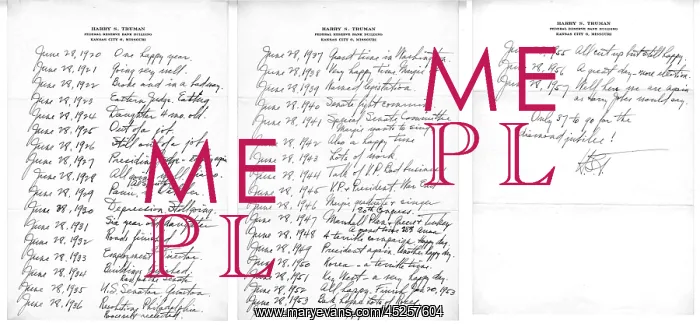 HARRY S. TRUMAN
FEDERAL RESERVE BANK BUILDING
KANSAS CITY 6, MISSOURI
June 28, 1920 One happy year.
June 28, 1921 Going very well.
June 28, 1922 Broke and in a bad way.
June 28, 1923 Eastern Judge. Eating
June 28, 1924 Daughter 4 mo. old.
June 28, 1925 Out of a job.
June 28, 1926 Still out of a job.
June 28, 1927 Presiding Judge - eating again
June 28, 1928 All
June 28, 1929 Panic, in October.
June 28, 1930 Depression. Still going.
June 28, 1931 Six year old daughter
June 28, 1932 Roads finished
June 28, 1933 Employment Director.
June 28, 1934 Buildings finished.
Ran for the Senate
June 28, 1935 U.S. Senator. Gunston
June 28, 1936 Resolutions Philadelphia.
Roosevelt reelected.
HARRY S. TRUMAN
FEDERAL RESERVE BANK BUILDING
KANSAS CITY 6, MISSOURI
June 28, 1937 Grand time in Washington.
June 28, 1938 Very happy time. Margie
June 28, 1939 Named legislation.
June 28, 1940 Senate fight coming
June 28, 1941 Special Senate Committee.
Margie wants to sing
June 28, 1942 Also a happy time
June 28, 1943 Lots of work.
June 28, 1944 Talk of V.P. Bad business
June 28, 1945 V.P. & President. War End
June 28, 1946 Margie graduate & singer
80th Congress.
June 28, 1947 Marshall Plan & Greece & Turkey
A grand time 28th Anni
June 28, 1948 A terrible campaign. Happy day.
June 28, 1949 President again. Another happy day.
June 28, 1950 Korea - a terrible time.
June 28, 1951 Key West - a very happy day
June 28, 1952 All happy. Finish Jan 20, 1953
June 28, 1953 Back home. Lots of Roses.
HARRY S. TRUMAN
FEDERAL RESERVE BANK BUILDING
KANSAS CITY 6, MISSOURI
June 28, 1955 All cut up but still happy.
June 28, 1956 A great day - more elation.
June 28, 1957 Well here we are again,
as Harry Jobes would say.
Only 37 to go for the
diamond jubilee!
H.S.T.
ME
PL
ME
PL
www.maryevans.com/45257604